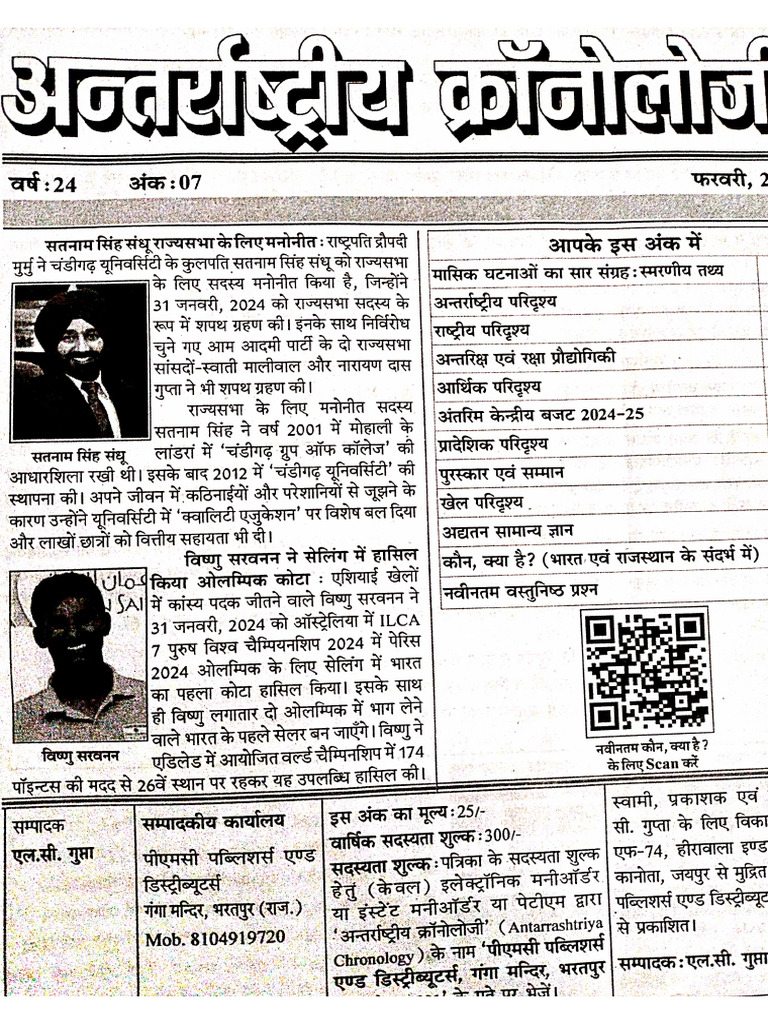 अन्तर्राष्ट्रीय क्रॉनोलोजी
वर्ष : 24 अंक : 07 फरवरी, 2
सतनाम सिंह संधू राज्यसभा के लिए मनोनीत : राष्ट्रपति द्रौपदी
मुर्मु ने चंडीगढ़ यूनिवर्सिटी के कुलपति सतनाम सिंह संधू को राज्यसभा
के लिए सदस्य मनोनीत किया है, जिन्होंने
31 जनवरी, 2024 को राज्यसभा सदस्य के
रूप में शपथ ग्रहण की। इनके साथ निर्विरोध
चुने गए आम आदमी पार्टी के दो राज्यसभा
सांसदों-स्वाती मालीवाल और नारायण दास
गुप्ता ने भी शपथ ग्रहण की।
राज्यसभा के लिए मनोनीत सदस्य
सतनाम सिंह ने वर्ष 2001 में मोहाली के
सतनाम सिंह संधू
लांडरां में 'चंडीगढ़ ग्रुप ऑफ कॉलेज' की
आधारशिला रखी थी। इसके बाद 2012 में 'चंडीगढ़ यूनिवर्सिटी' की
स्थापना की। अपने जीवन में कठिनाईयों और परेशानियों से जूझने के
कारण उन्होंने यूनिवर्सिटी में 'क्वालिटी एजुकेशन' पर विशेष बल दिया
और लाखों छात्रों को वित्तीय सहायता भी दी।
विष्णु सरवनन ने सेलिंग में हासिल
किया ओलम्पिक कोटा : एशियाई खेलों
में कांस्य पदक जीतने वाले विष्णु सरवनन ने
31 जनवरी, 2024 को ऑस्ट्रेलिया में ILCA
7 पुरुष विश्व चैम्पियनशिप 2024 में पेरिस
2024 ओलम्पिक के लिए सेलिंग में भारत
का पहला कोटा हासिल किया। इसके साथ
ही विष्णु लगातार दो ओलम्पिक में भाग लेने
वाले भारत के पहले सेलर बन जाएँगे। विष्णु ने
विष्णु सरवनन
एडिलेड में आयोजित वर्ल्ड चैम्पिनशिप में 174
पॉइन्टस की मदद से 26वें स्थान पर रहकर यह उपलब्धि हासिल की।
आपके इस अंक में
मासिक घटनाओं का सार संग्रह : स्मरणीय तथ्य
अन्तर्राष्ट्रीय परिदृश्य
राष्ट्रीय परिदृश्य
अन्तरिक्ष एवं रक्षा प्रौद्योगिकी
आर्थिक परिदृश्य
अंतरिम केन्द्रीय बजट 2024-25
प्रादेशिक परिदृश्य
पुरस्कार एवं सम्मान
खेल परिदृश्य
अद्यतन सामान्य ज्ञान
कौन, क्या है? (भारत एवं राजस्थान के संदर्भ में)
नवीनतम वस्तुनिष्ठ प्रश्न
नवीनतम कौन, क्या है?
के लिए Scan करें
सम्पादक
एल.सी. गुप्ता
सम्पादकीय कार्यालय
पीएमसी पब्लिशर्स एण्ड
डिस्ट्रीब्यूटर्स
गंगा मन्दिर, भरतपुर (राज.)
Mob. 8104919720
इस अंक का मूल्य : 25/-
वार्षिक सदस्यता शुल्क : 300/-
सदस्यता शुल्क : पत्रिका के सदस्यता शुल्क
हेतु (केवल) इलेक्ट्रॉनिक मनीऑर्डर
या इंस्टेंट मनीऑर्डर या पेटीएम द्वारा
'अन्तर्राष्ट्रीय क्रॉनोलोजी' (Antarrashtriya
Chronology) के नाम 'पीएमसी पब्लिशर्स
एण्ड डिस्ट्रीब्यूटर्स, गंगा मन्दिर, भरतपुर
के पते पर भेजें।
स्वामी, प्रकाशक एवं
सी. गुप्ता के लिए विका
एफ-74, हीरावाला इण्ड
कानोता, जयपुर से मुद्रित
पब्लिशर्स एण्ड डिस्ट्रीब्यूट
से प्रकाशित।
सम्पादक : एल.सी. गुप्ता